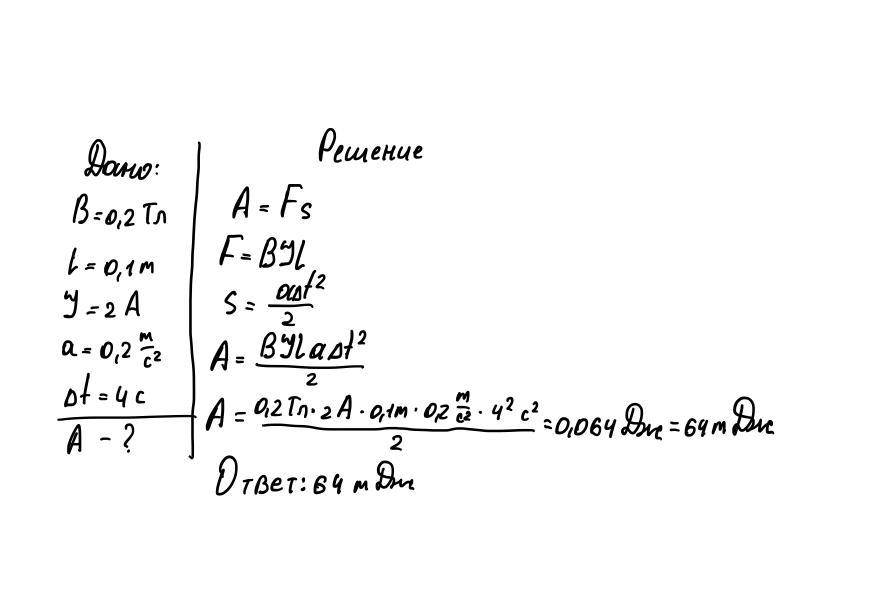 Дано:
B=0,2 Тл
l=0,1 м
У=2 А
a=0,2 м/с²
Δt=4 с
А - ?
Решение
A = Fs
F=BУl
s = aΔt²/2
A = BУlaΔt²/2
A = 0,2 Тл · 2 А · 0,1м · 0,2 м/с² · 4² с²/2 =0,064 Дж = 64 мДж
Ответ: 64 мДж